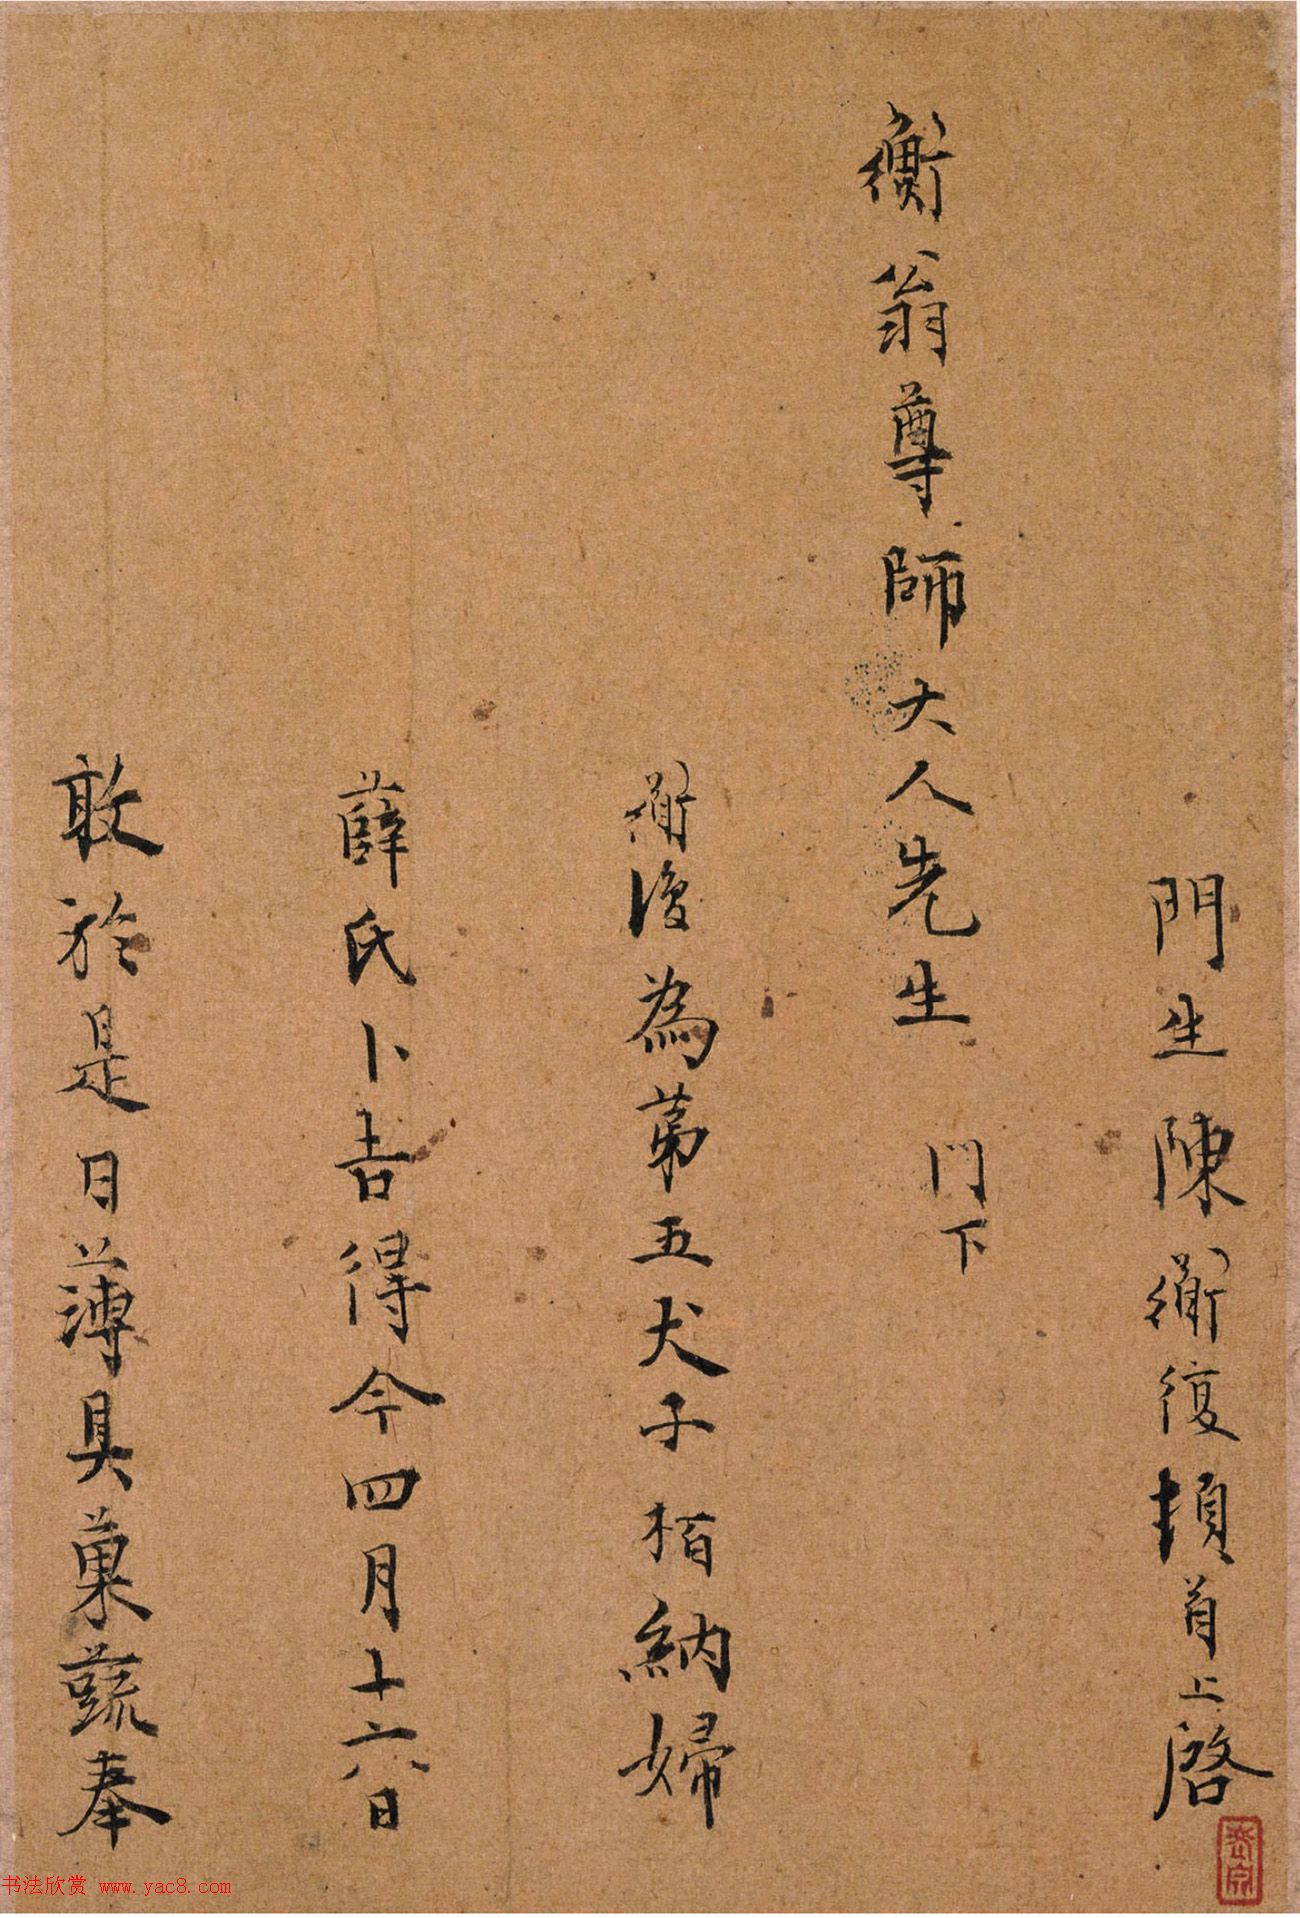 門生陳衟復頓首上啓
衡翁尊師大人先生 門下
衟復為苐五犬子栢納婦
薛氏卜吉得今四月十六日
敢於是日薄具菓蔬奉
书法欣赏 www.yac8.com